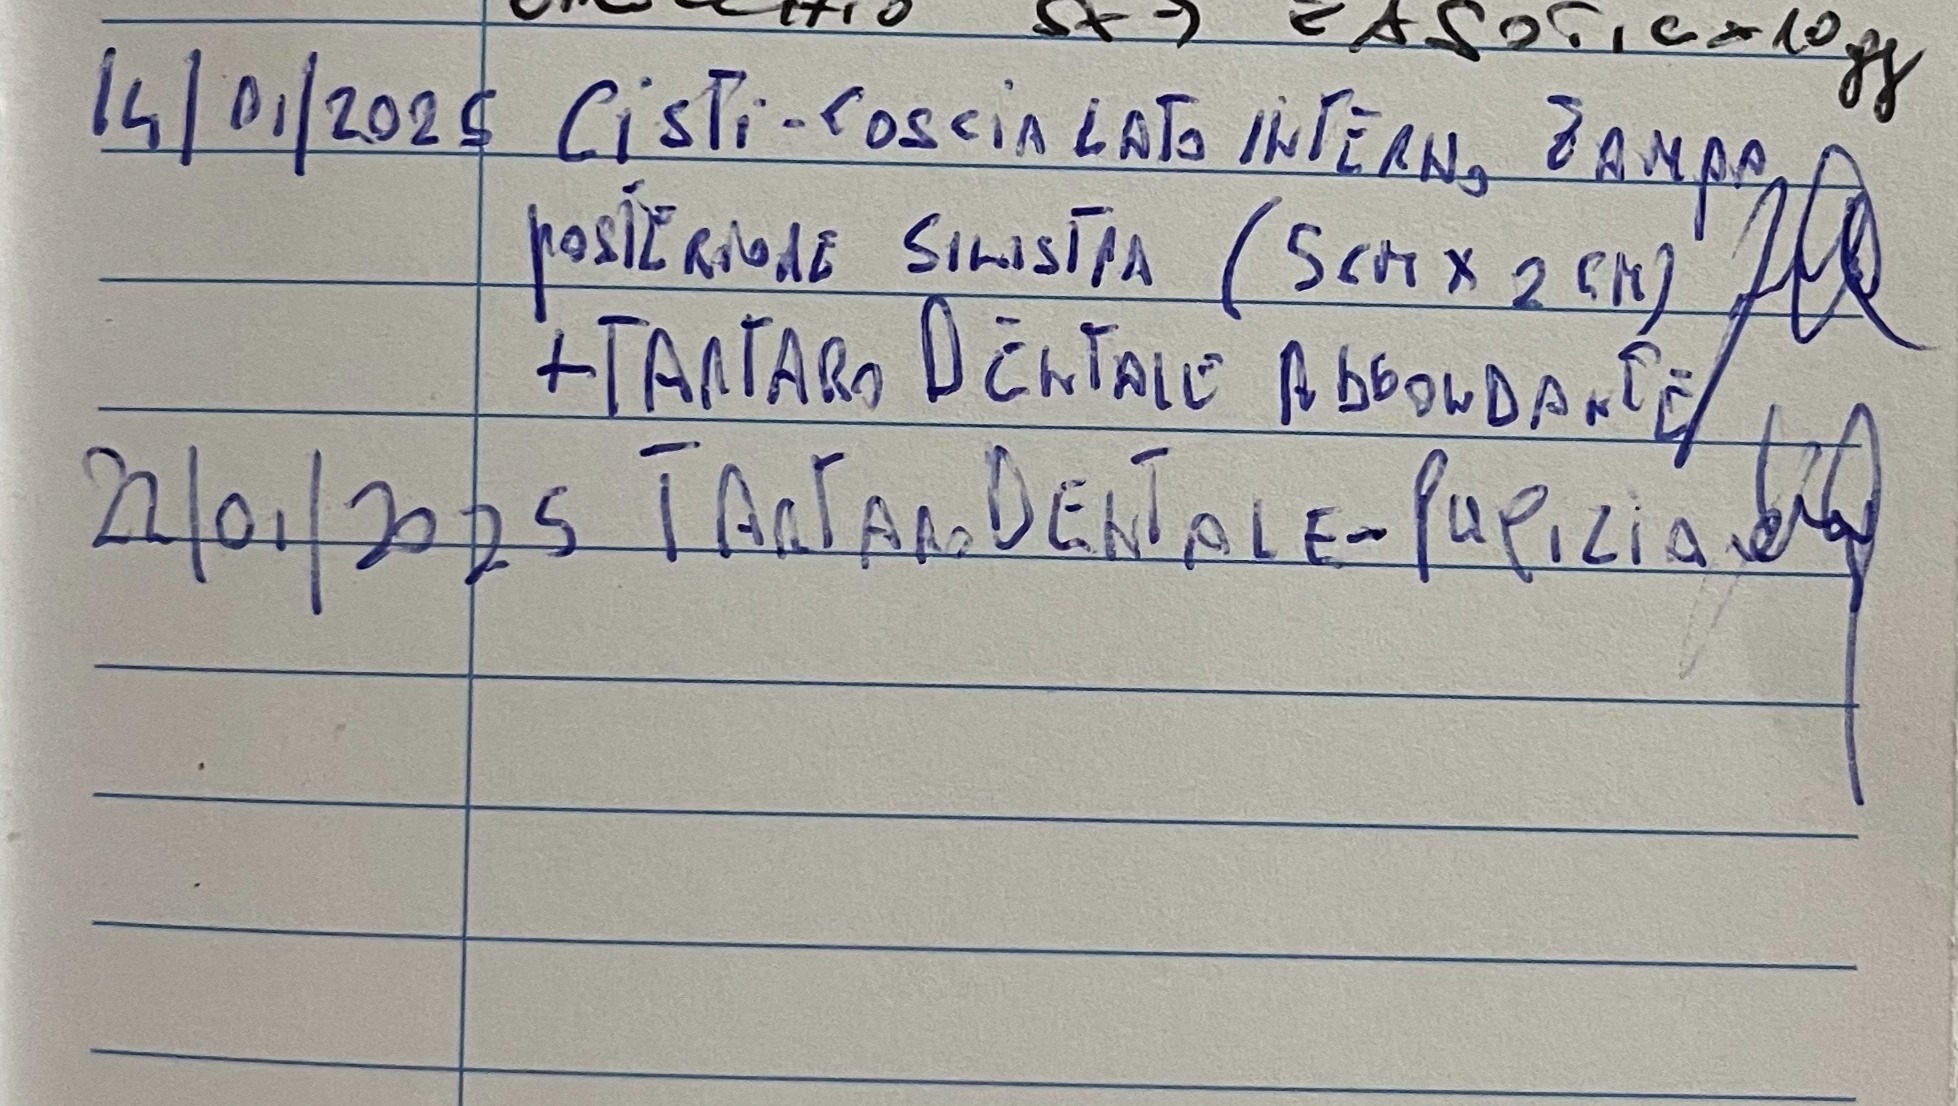 sx → EASOTIC x 10 gg
14/01/2025 CISTI - COSCIA LATO INTERNO ZAMPA
POSTERIORE SINISTRA (5CM X 2CM)
+ TARTARO DENTALE ABBONDANTE
22/01/2025 TARTARO DENTALE - PULIZIA